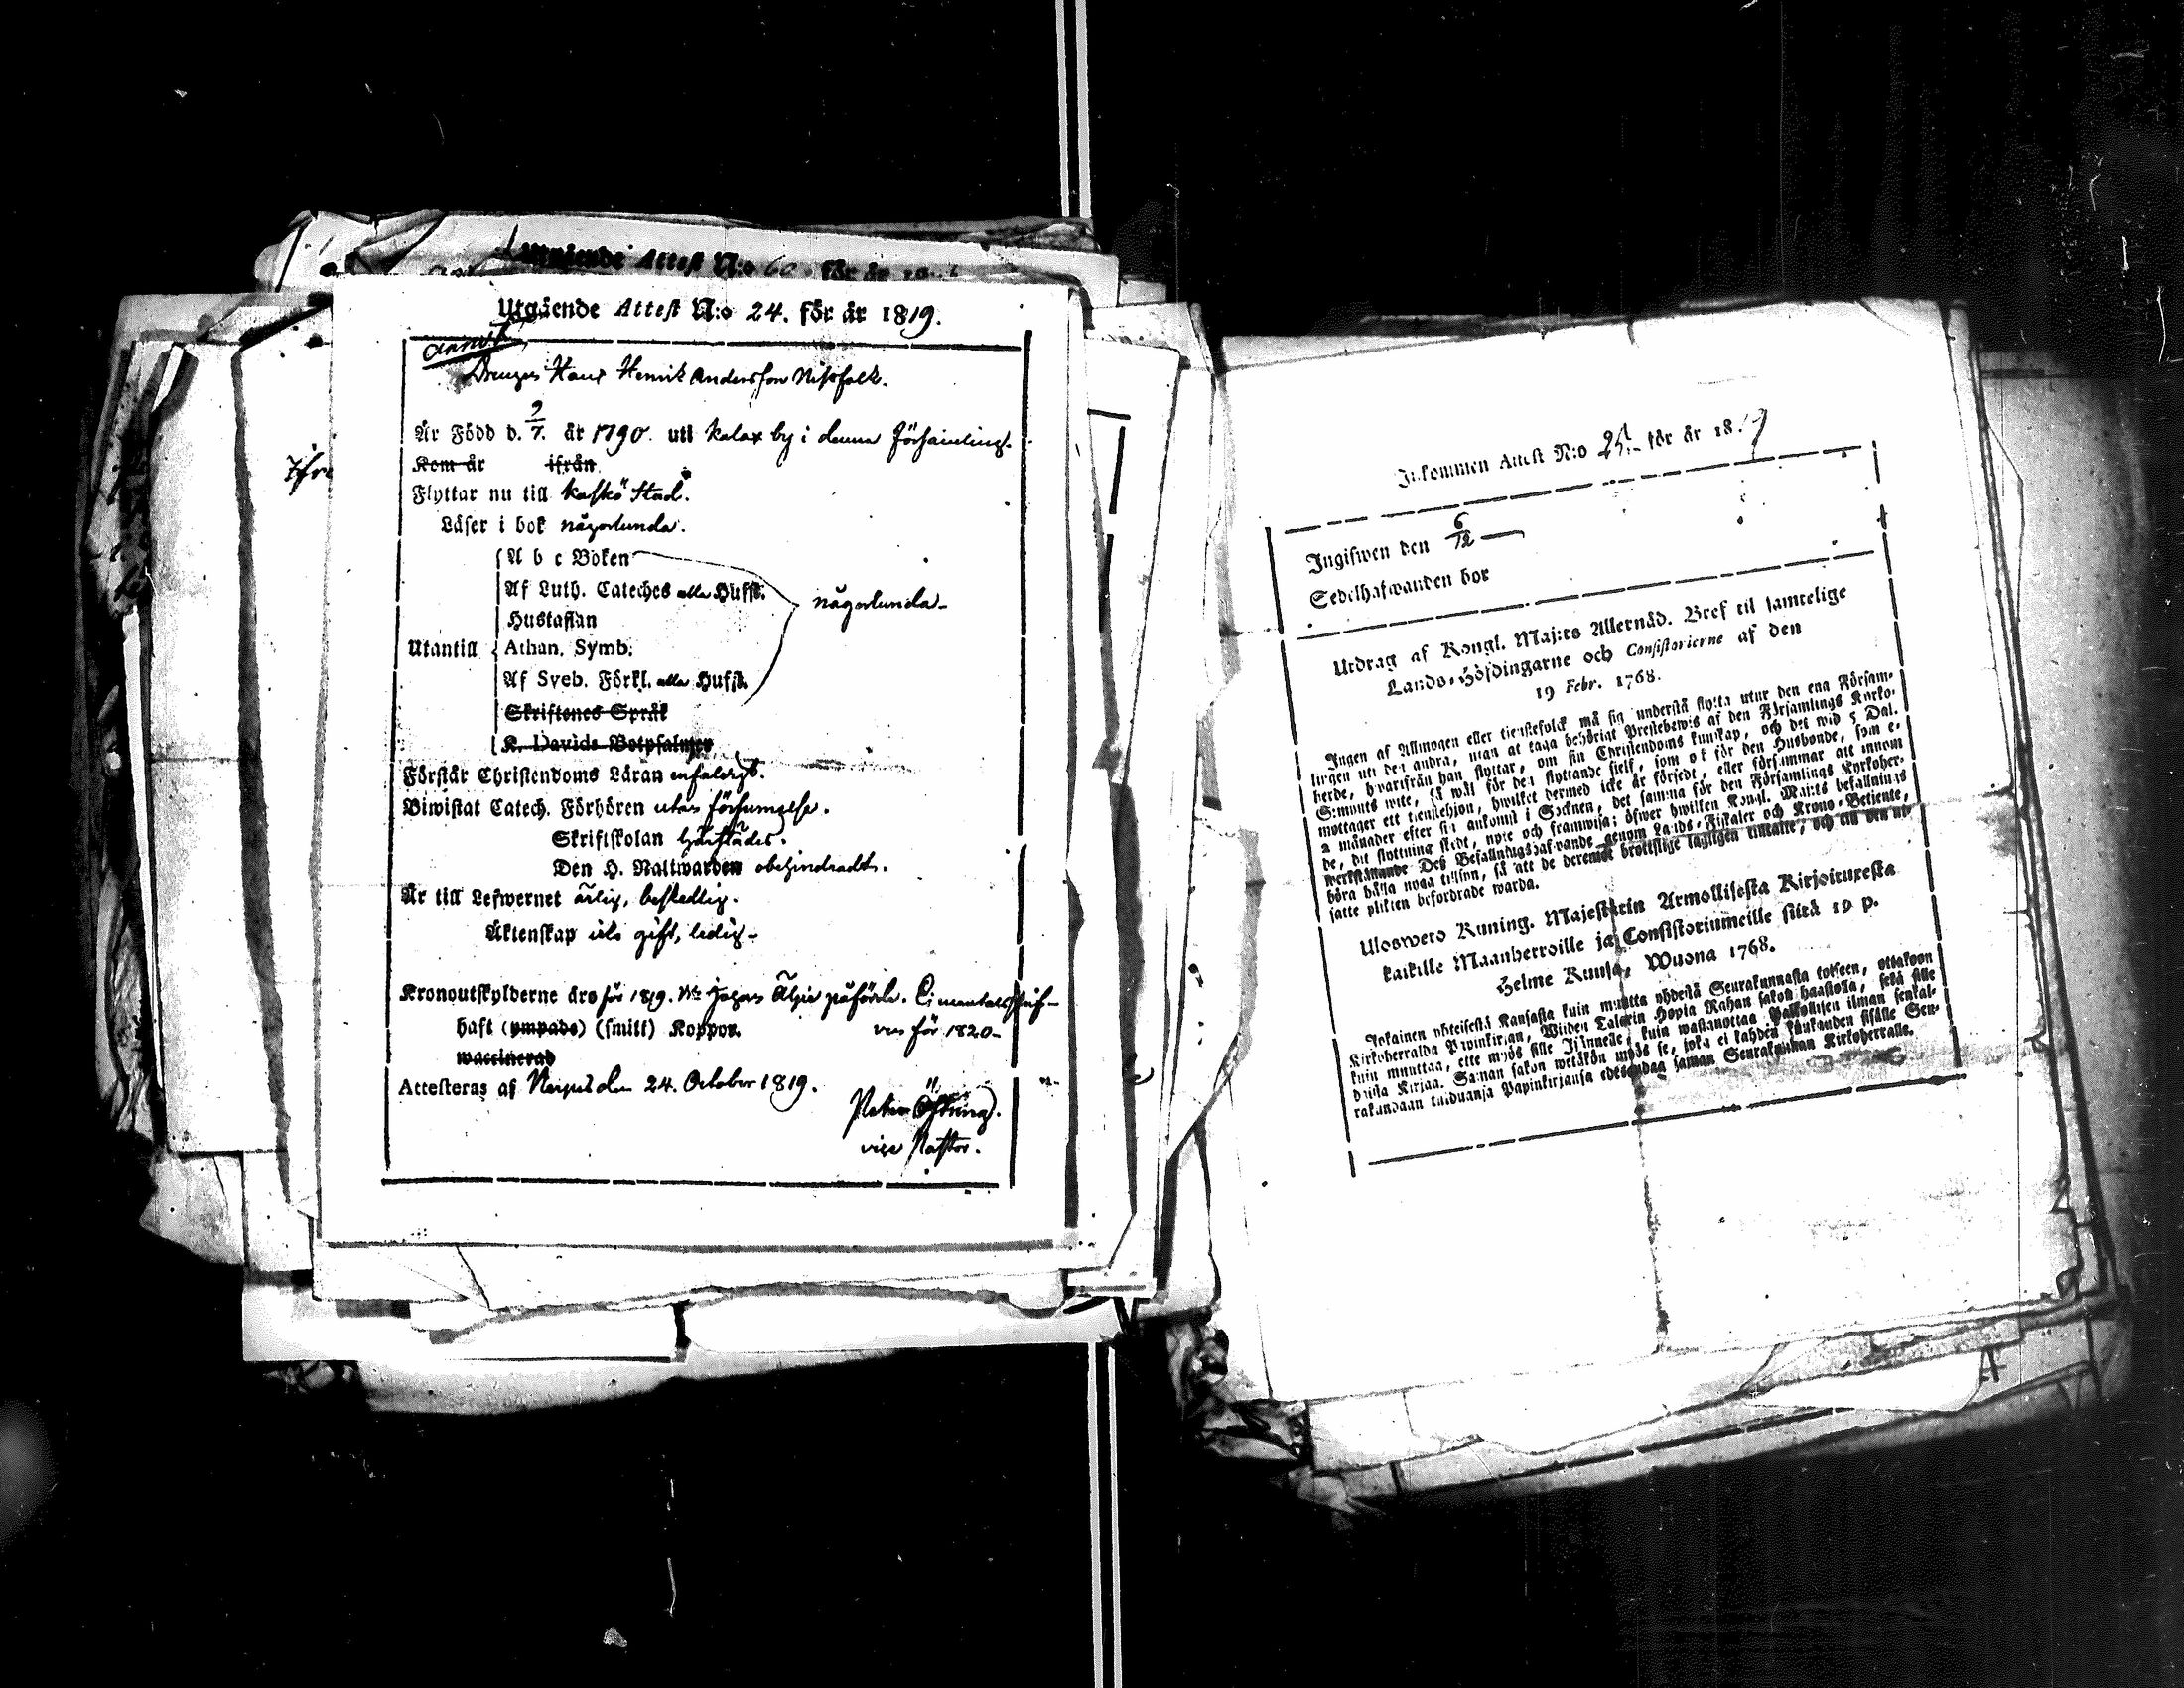 Utgående Attest N:o 24. för år 1819.
Drengen Hans Henrik Andersson Nissfolk.
Är Född d. 9/7. år 1790. uti Kalax by i denna Församling.
Kom år ifrån
Flyttar nu till Kaskö Stad.
Läser i bok någorlunda.
A b c Boken
Af Luth. Cateches alla Hufst.
Hustaflan
någorlunda
Utantill Athan. Symb.
Af Sveb. Förkl. alla Hufst.
Skriftenes Språk
K. Davids Botpsalmer
Förstår Christendoms Läran enfaldigt.
Biwistat Catech. Förhören utan försumelse.
Skriftskolan härstädes.
Den H. Nattwarden obehindradt.
Är till Lefwernet ärlig, beskedlig.
Äktenskap icke gift, ledig
Kronoutskylderne äro för 1819.
haft (ympade) (smitt) Koppor. för 1820
waccinerad
Attesteras af Nerpes den 24. October 1819.
Peter Östring.
vice Pastor.
Inkommen Attest N:o 25. för år 1819
Ingifwen den 6/12
Sedelhafwanden bor
Utdrag af Kongl. Maj:ts Allernåd. Bref til samtelige
Lands-Höfdingarne och Consistorierne af den
19 Febr. 1768.
Ingen af Allmogen eller tienstefolck må sig understå flytta utur den ena Församlingen
uti den andra, utan at taga behörigt Prestebewis af den Församlings Kyrkoherde,
hwarifrån han flyttar, om sin Christendoms kunskap, och det wid 5 Dal.
S:mynts wite, så wäl för den flyttande sielf, som ock för den Husbonde, som emottager
ett tienstehjon, hwilket dermed icke är försedt, eller försummar att innom
2 månader efter sin ankomst i Socknen, det samma för den Församlings Kyrkoherde,
dit flyttning skedt, upte och framwisa; öfwer hwilken Kongl. Maj:ts befallnings
werkställande Deß Befallningshafwande genom Lands-Fiskaler och Krono-Betiente,
böra hålla noga tillsyn, så att de deremot brottslige lagligen tilltalte, och till den utsatte
plikten befordrade warda.
Uloswero Kuning. Majestetin Armollisesta Kirjoituxesta
kaikille Maanherroille ja Consistoriumeille siitä 19 p.
Helme Kuusa, Wuona 1768.
Jokainen yhteisestä Kansasta kuin muutta yhdestä Seurakunnasta toiseen, ottakoon
Kirkoherralda Papinkirjan, Wiiden Talarin Hopia Rahan sakon haastolla, sekä sille
kuin muuttaa, ette myös sille Isännelle, kuin wastanottaa Palkollisen ilman senkaldaista
Kirjaa. Saman sakon wetäkön myös se, joka ei kahden kuukauden sisälle Seurakundaan
tulduansa Papinkirjansa edesandaa saman Seurakunnan Kirkoherralle.